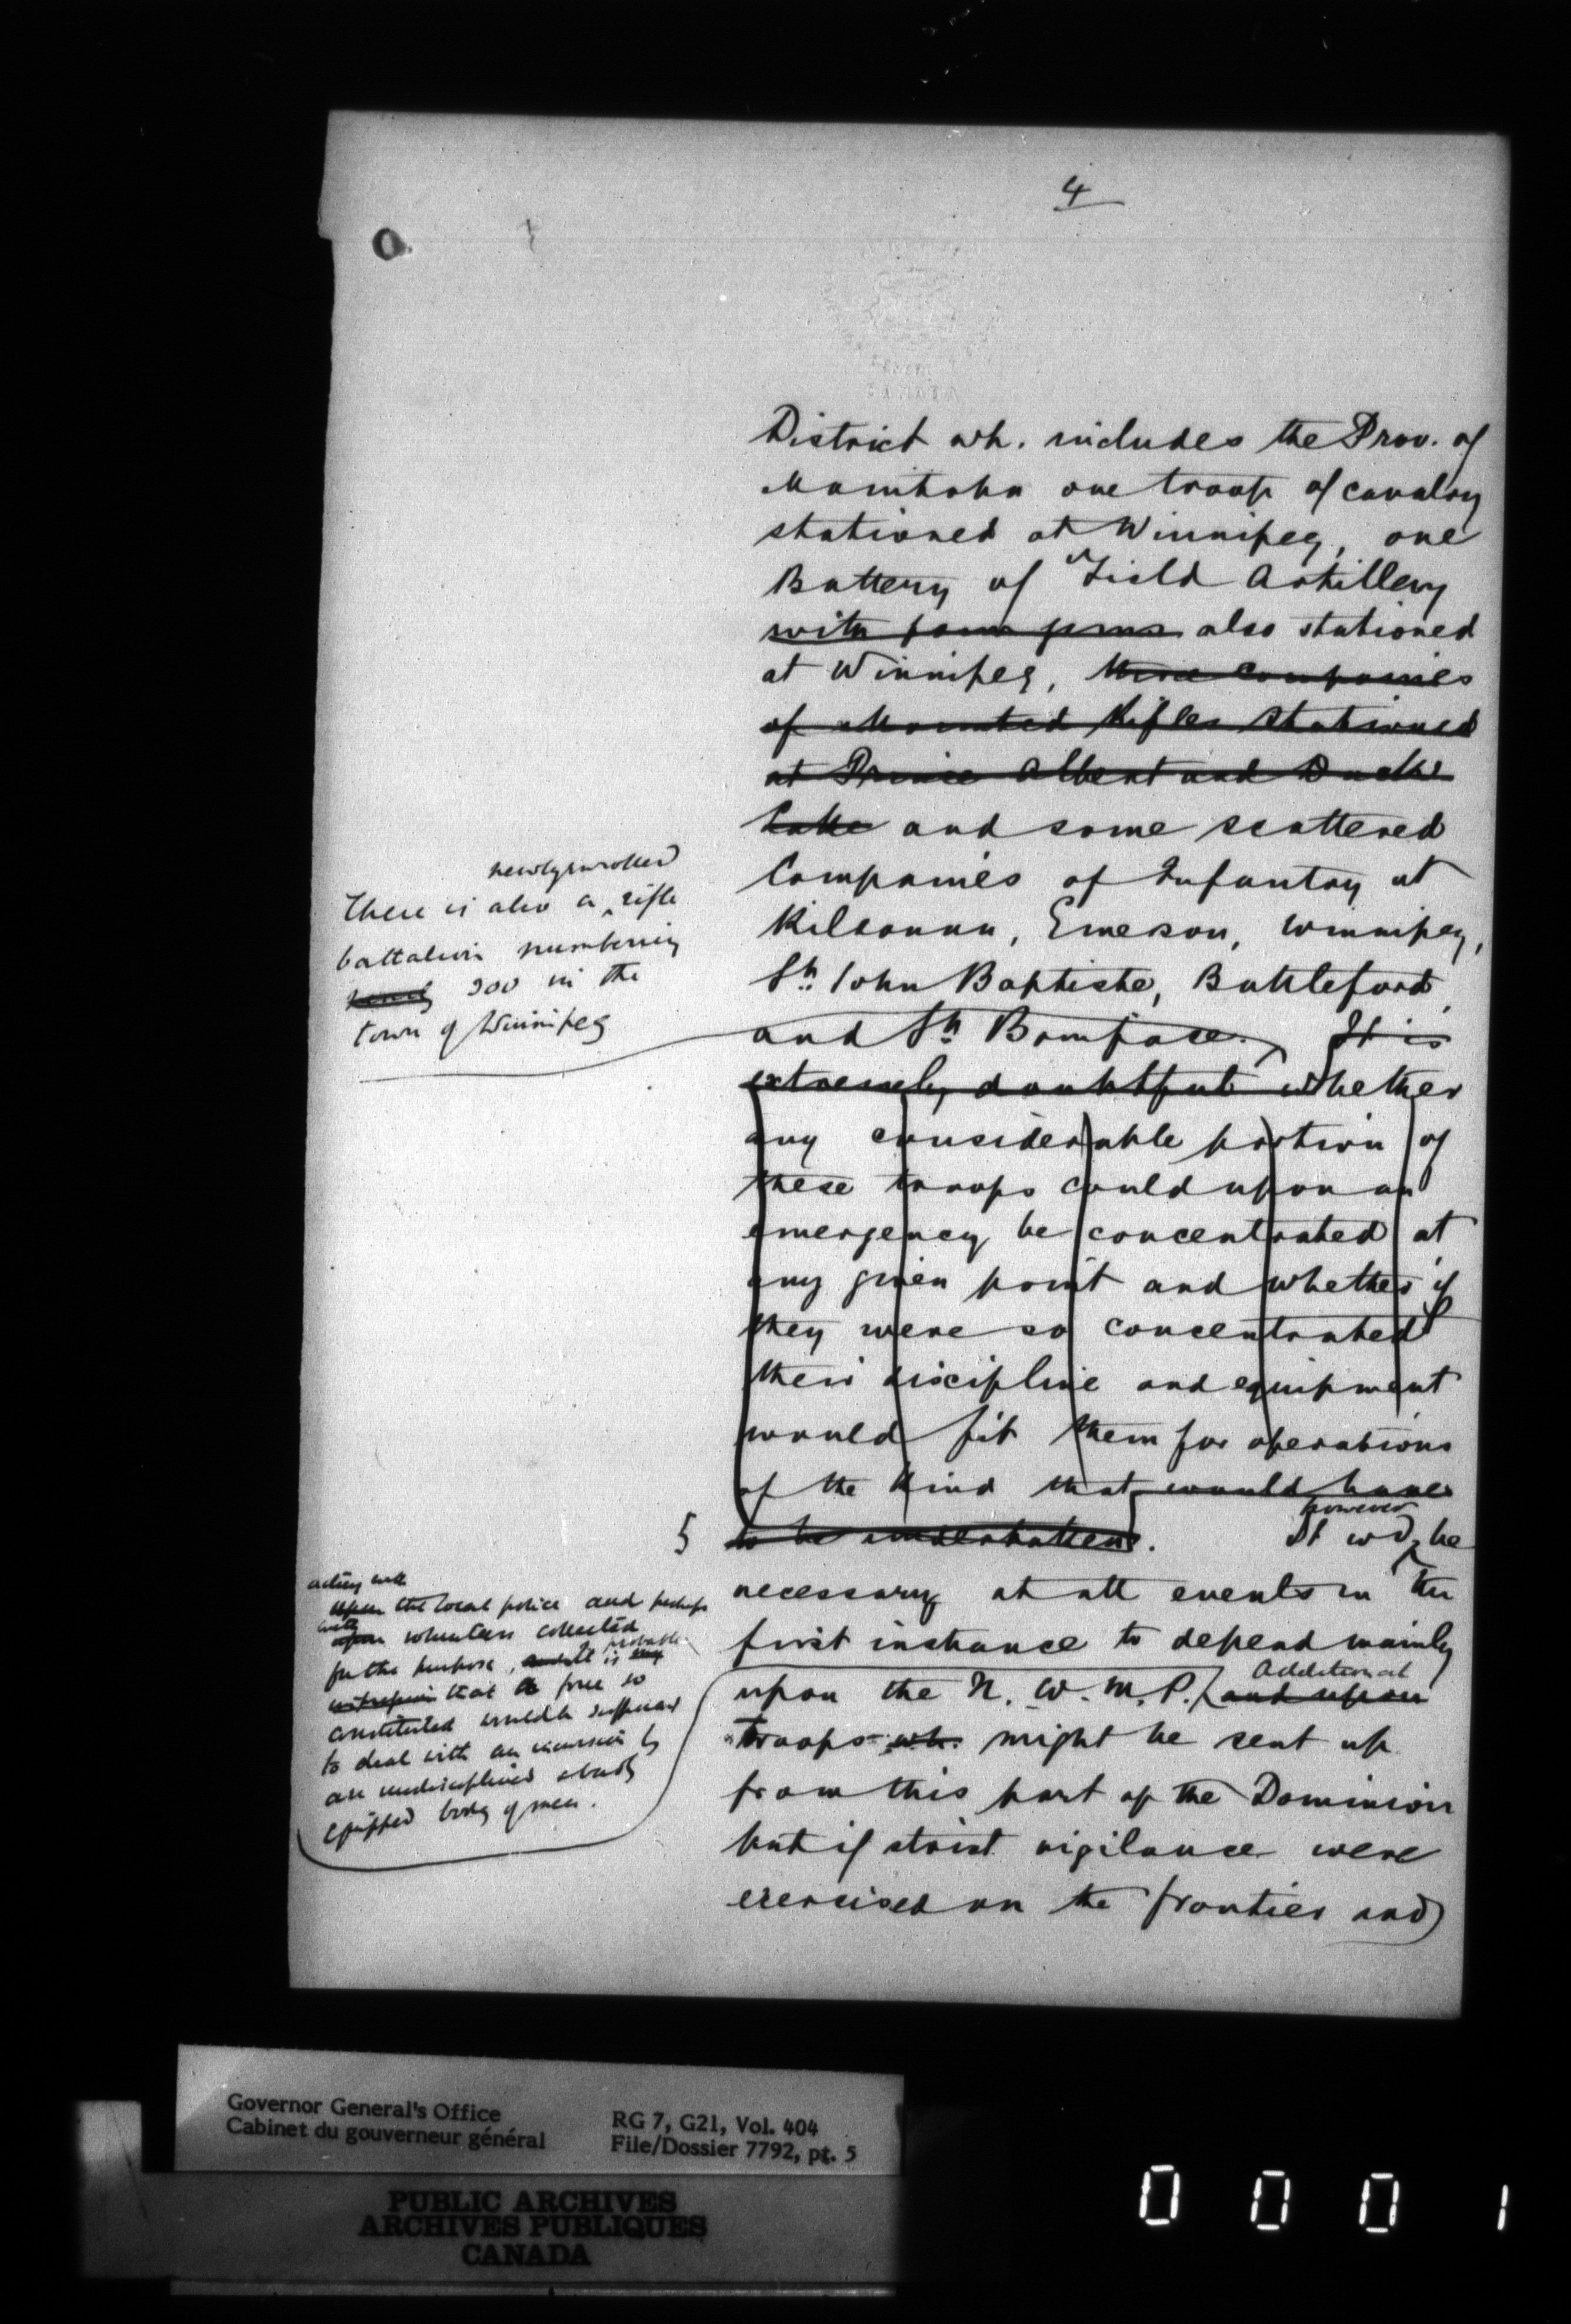 4
District wh. includes the Prov. of
Manitoba one troop of cavalry
stationed at Winnipeg, one
Battery of Field Artillery
with four guns also stationed
at Winnipeg, three companies
of Mounted Rifles stationed
at Prince Albert and Duck
Lake and some scattered
Companies of Infantry at
Kildonan, Emerson, Winnipeg,
St. John Baptiste, Battleford
and St. Boniface. It is
extremely doubtful whether
any considerable portion of
these troops could upon an
emergency be concentrated at
any given point and whether if
they were so concentrated
their discipline and equipment
would fit them for operations
of the kind that would have
to be undertaken.
however
It wd. be
necessary at all events in the
first instance to depend mainly
upon the N. W. M. P. and upon
Additional
troops wh. might be sent up
from this part of the Dominion
but if strict vigilance were
exercised on the frontier and
newly enrolled
There is also a rifle
battalion numbering
nearly 300 in the
town of Winnipeg
5
acting with
upon the local police and perhaps
with
upon volunteers collected
probable
for the purpose, it is
that a force so
constituted would be sufficient
to deal with an incursion by
an undisciplined & badly
equipped body of men.
Governor General's Office
Cabinet du gouverneur général
RG 7, G21, Vol. 404
File/Dossier 7792, pt. 5
PUBLIC ARCHIVES
ARCHIVES PUBLIQUES
CANADA
0001